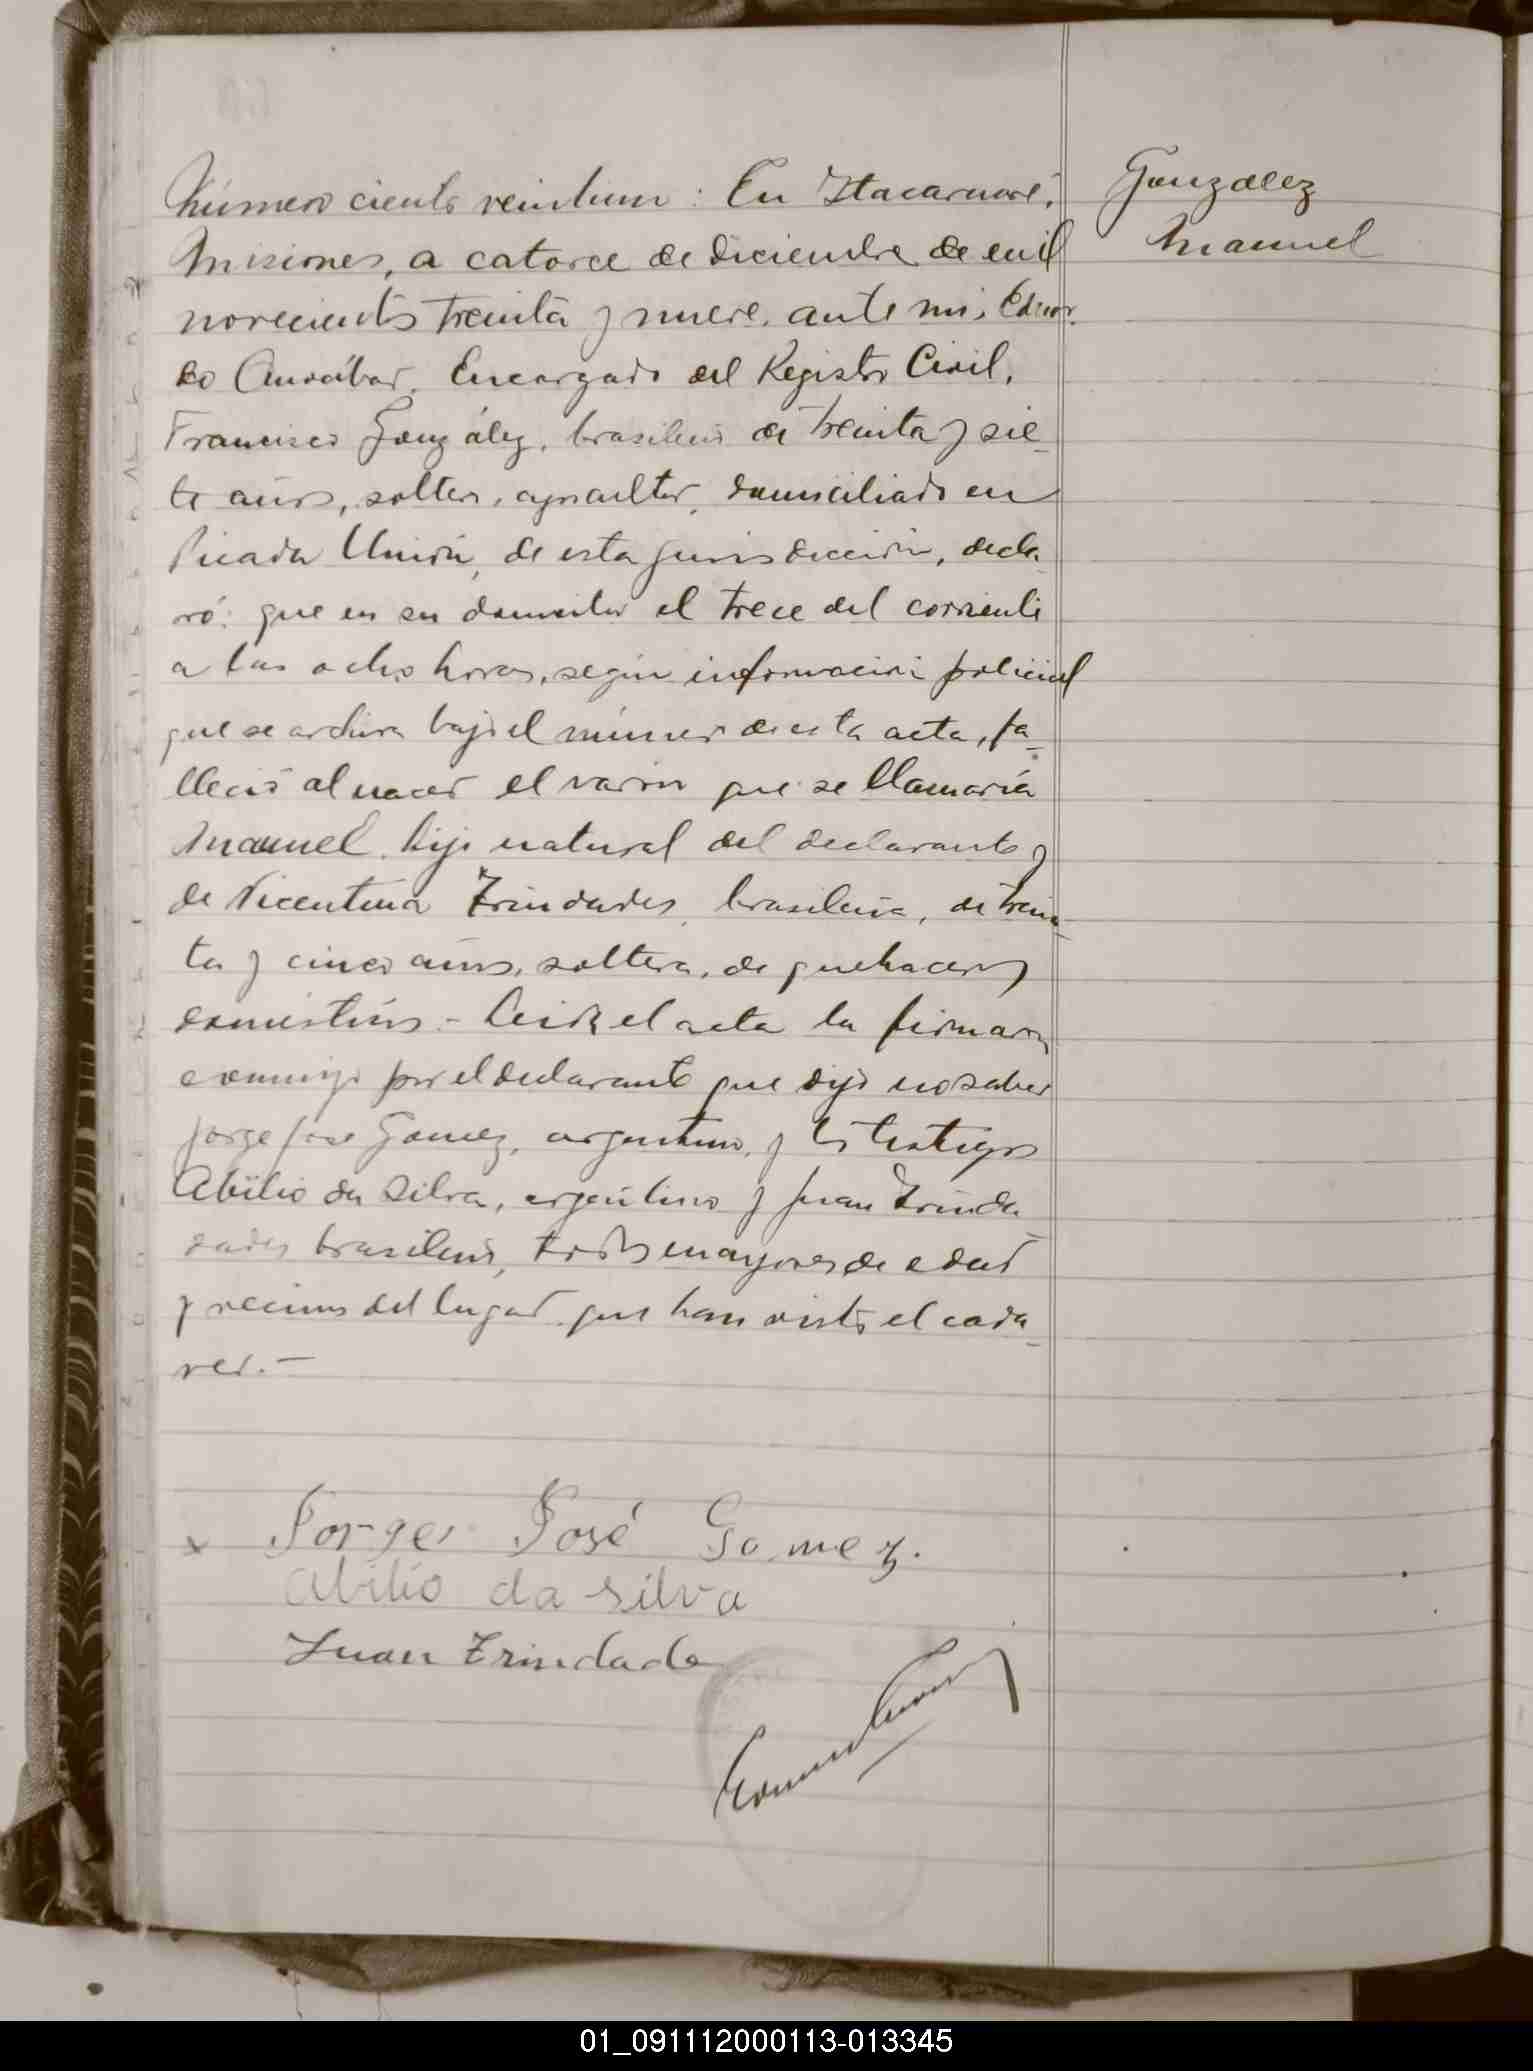 Número ciento veintiun: En Itacaruaré,
Misiones, a catorce de diciembre de mil
novecientos treinta y nueve, ante mi, Eduar-
do Encargado del Registro Civil,
Francisco González, brasileño de treinta y sie-
te años, soltero, agricultor, domiciliado en
Picada Unión, de esta jurisdicción, decla-
ró: que en su domicilio el trece del corriente
a las ocho horas, según información policial
que se archiva bajo el número de esta acta, fa-
lleció al nacer el varón que se llamaría
Manuel, hijo natural del declarante y
de Vicentina Trindades, brasileña, de trein-
ta y cinco años, soltera, de quehaceres
domésticos.- Leída el acta la firmaron
conmigo por el declarante que dijo no saber
Jorge José Gomez, argentino, y los testigos
Abilio da Silva, argentino y Juan Trinda-
dades brasileño, todos mayores de edad
y vecinos del lugar que han visto el cada-
ver.-
González
Manuel
x Jorge José Gomez.
Abilio da silva
Juan Trindade
01_091112000113-013345